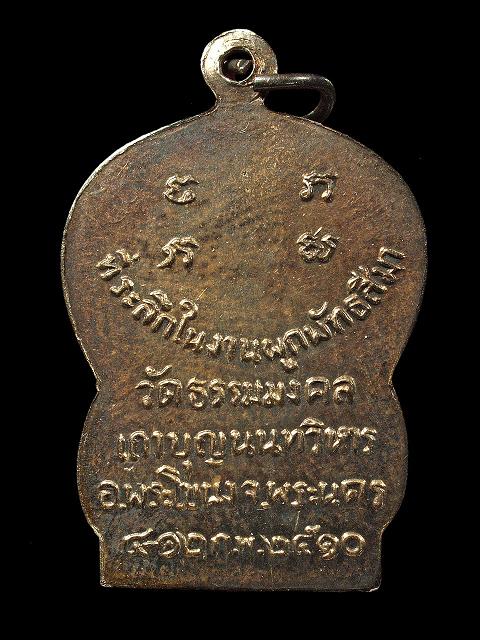 ที่ระลึกในงานผูกพัทธสีมา
วัดธรรมมงคล
เถาบุญนนทวิหาร
อ.พระโขนง จ.พระนคร
๔-๑๒ ก.พ. ๒๕๑๐